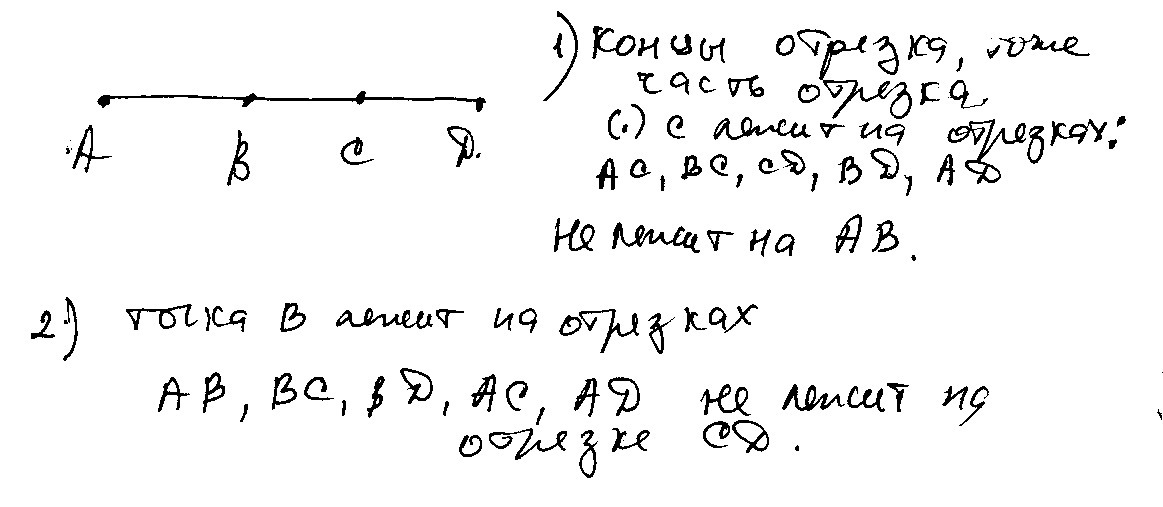 1) Концы отрезка, тоже
часть отрезка.
(.) С лежит на отрезках:
АС, ВС, СD, ВD, АD
Не лежит на АВ.
А В С D.
2.) точка В лежит на отрезках
АВ, ВС, ВD, АС, АD не лежит на
отрезке СD.